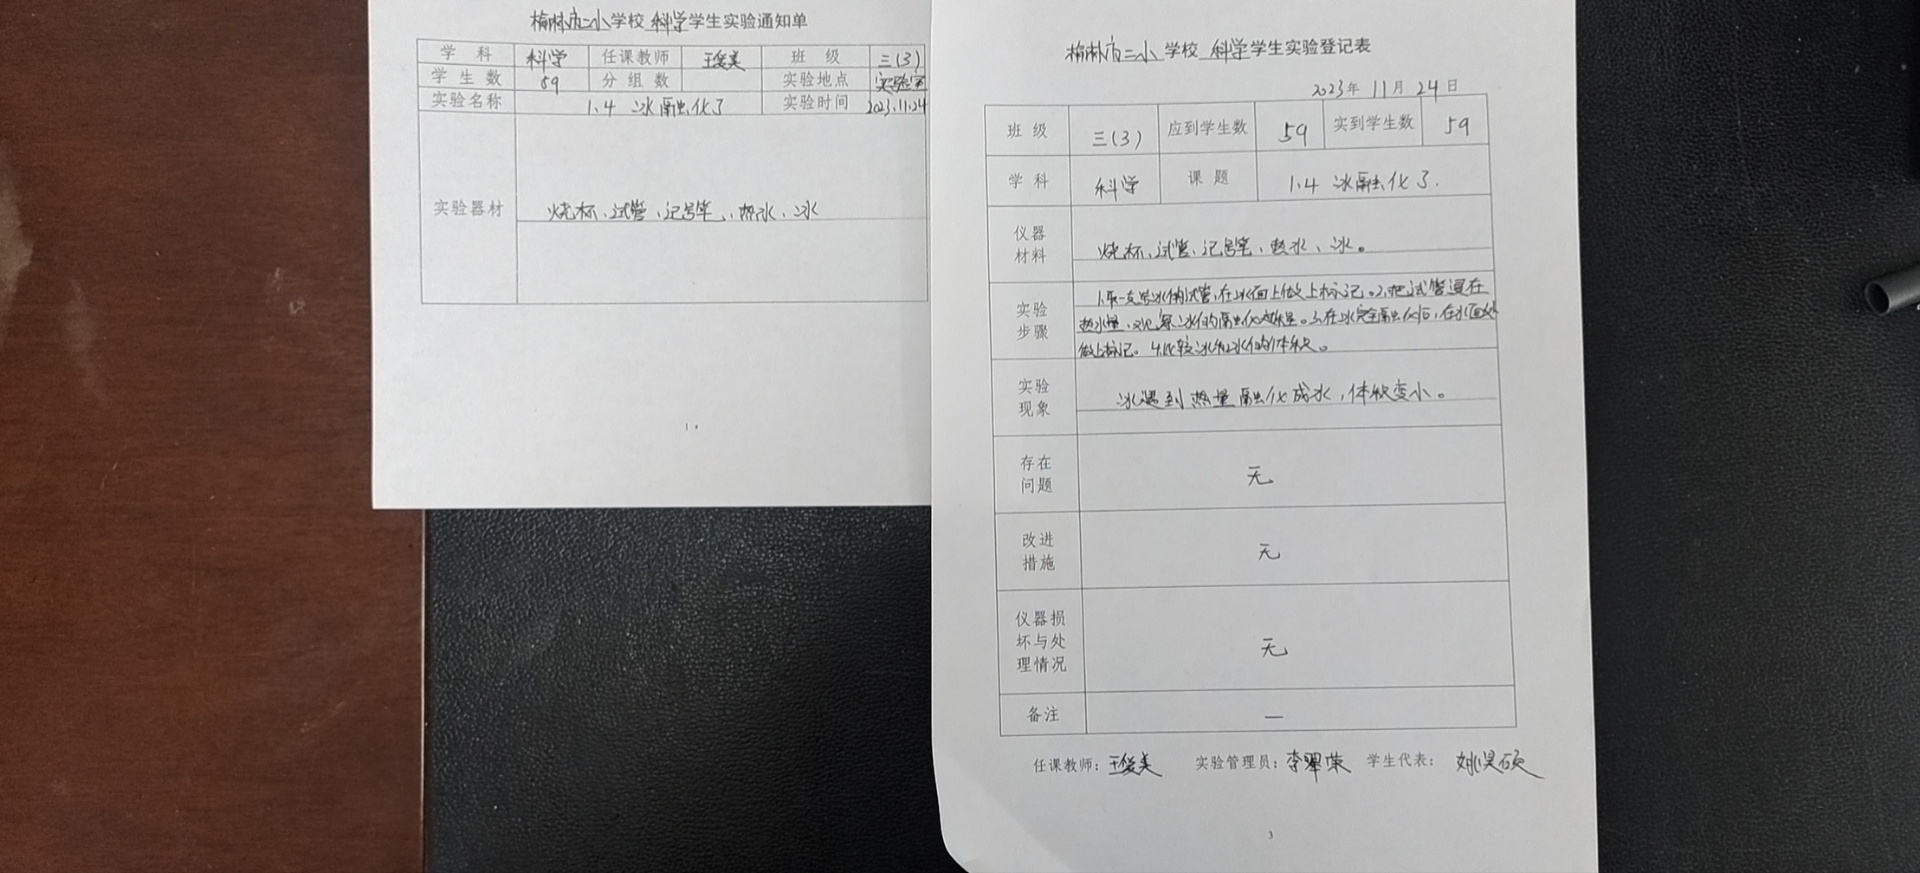 榆林市二小学校 科学学生实验通知单
学 科 科学 任课教师 王俊美 班 级 三(3)
学 生 数 59 分 组 数 实验地点 实验室
实验名称 1.4 冰融化了 实验时间 2023.11.24
实验器材 烧杯、试管、记号笔、热水、冰
1.
榆林市二小学校 科学学生实验登记表
2023年 11月 24日
班 级 三(3) 应到学生数 59 实到学生数 59
学 科 科学 课 题 1.4 冰融化了.
仪器
材料
烧杯、试管、记号笔、热水、冰。
实验
步骤
1.取一支装冰的试管,在冰面上做上标记。2.把试管浸在
热水里,观察冰的融化。3.在冰完全融化后,在水面处
做上标记。4.比较冰和水的体积。
实验
现象
冰遇到热量融化成水,体积变小。
存在
问题
无
改进
措施
无
仪器损
坏与处
理情况
无
备注 —
任课教师: 王俊美 实验管理员: 李翠荣 学生代表: 姚昊硕
3